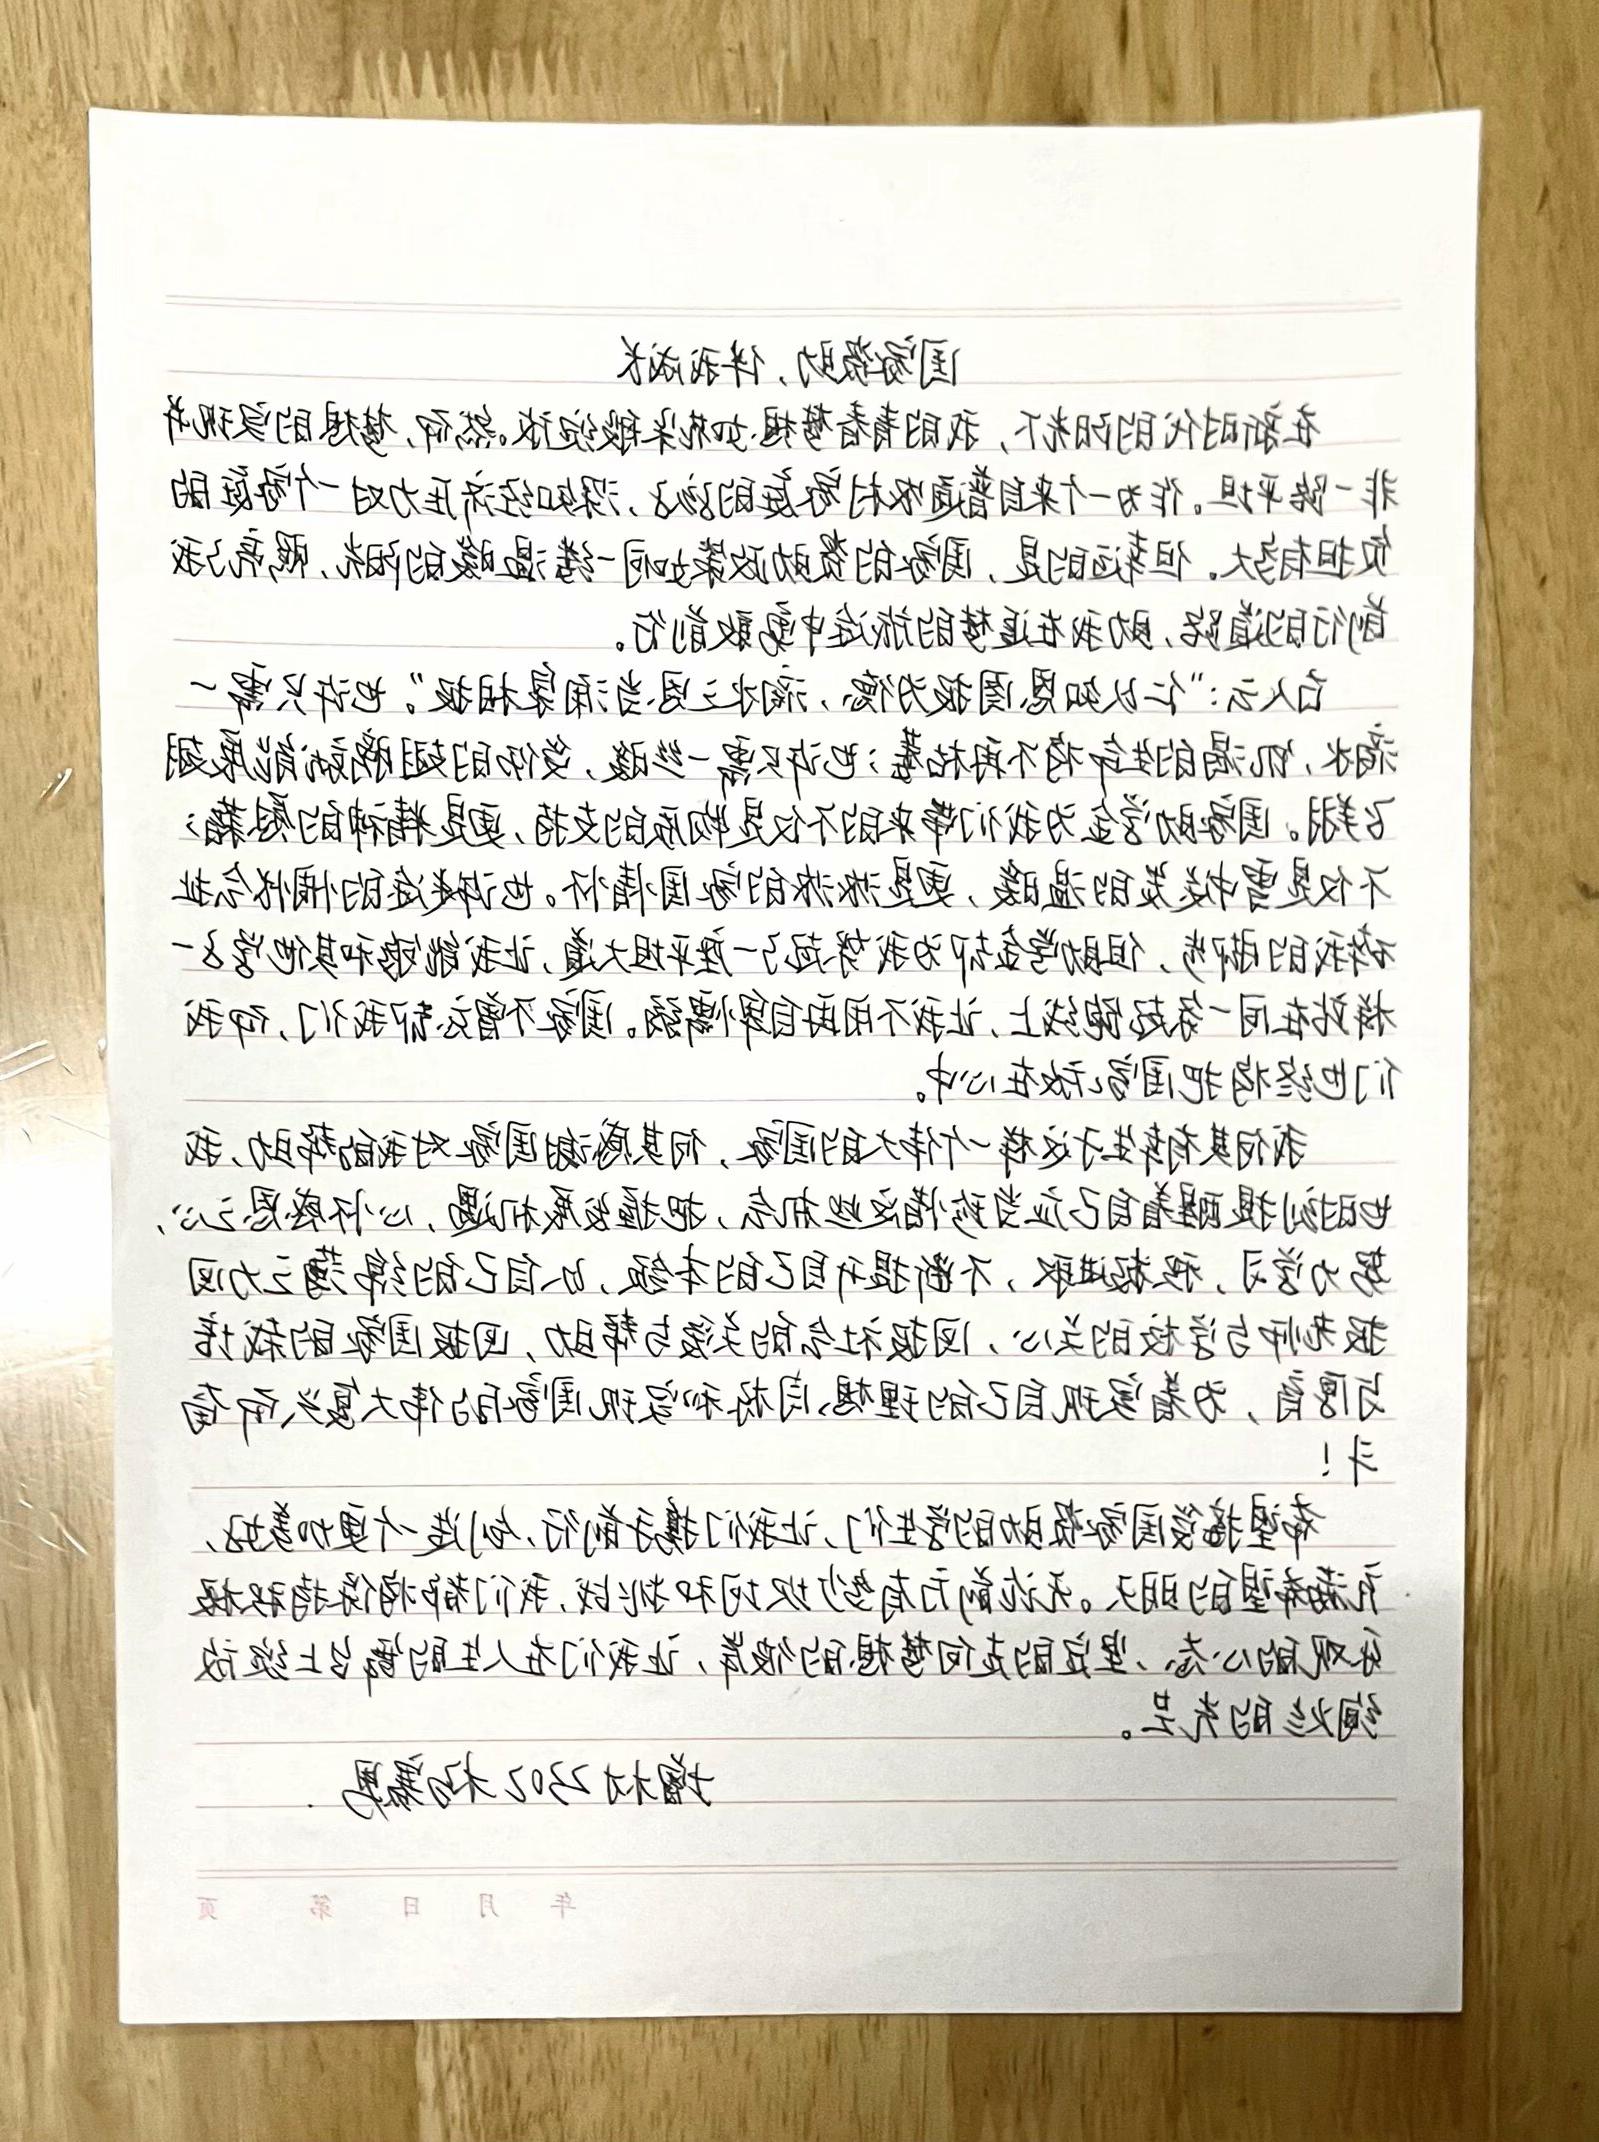 国家资助，伴我成长
在新时代的阳光下，我的青春梦想如花朵般绽放。然而，梦想的实现并
非一路平坦。作为一个来自普通农村家庭的孩子，深知经济压力对一个家庭的
负担有多大。但幸运的是，国家的资助政策如同一缕温暖的阳光，照亮了我
前行的道路，助我在追梦的旅途中勇敢前行。
古人云："仁以知恩图报为德，滴水之恩当涌泉相报"。也许只需一
滴水，饥渴的生命将不再枯萎；也许只需一丝暖，受伤的翅膀就能展翅
飞翔。国家助学金为我们带来的不仅是物质的支持，更是精神的慰藉；
不仅是雪中送炭的温暖，更是浓浓的家国情怀。也许迷途的惆怅会扯
碎我的脚步，但助学金却为我架起了一座平坦大道，让我能够和其他学子一
样站在同一条起跑线上，让我不用再自卑懦弱。国家不曾忘却我们，而我
们也终将把国家放在心中。
我何其有幸生于这样一个伟大的国家，何其感谢国家对我的帮助，我
也时刻提醒着自己应当珍惜这些机会，把握发展机遇，心怀感恩之心，
努力学习，积极进取，不断提升自己的本领，以自己的绵薄之力回
报老师与学校的关心，回报社会的关爱与帮助，回报国家的栽培
与厚爱，为着实现自己的理想、目标和实现国家的伟大复兴而奋
斗！
希望接受国家资助的学生们，让我们携手前行，创造一个更加美好、
充满希望的明天。无论前方有多少坎坷和挑战，我们都将保持积极
乐观的心态、坚定的走向梦想的彼岸，让我们在人生的舞台上绽放
绚烂的光芒。
2302 杨
年 月 日 第 页